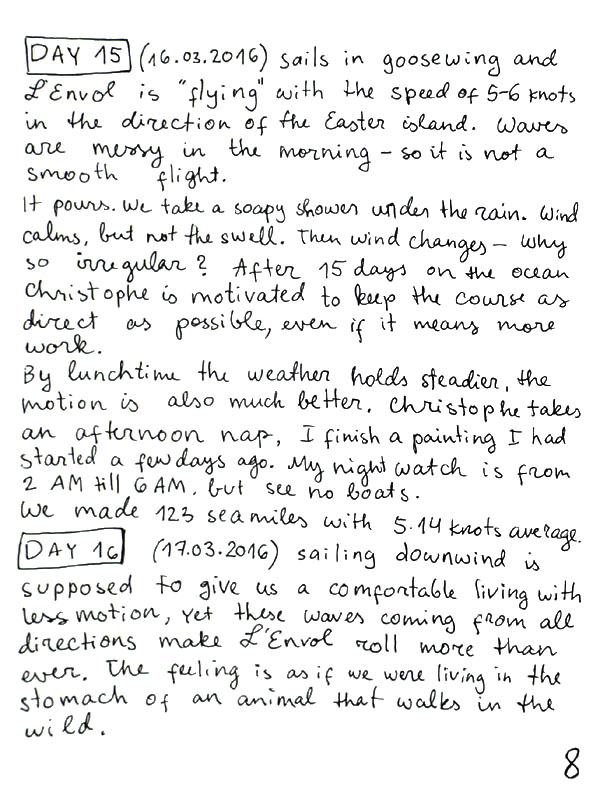 DAY 15 (16.03.2016) sails in goosewing and
L'Envol is "flying" with the speed of 5-6 knots
in the direction of the Easter island. Waves
are messy in the morning – so it is not a
smooth flight.
It pours. We take a soapy shower under the rain. Wind
calms, but not the swell. Then wind changes – why
so irregular? After 15 days on the ocean
Christophe is motivated to keep the course as
direct as possible, even if it means more
work.
By lunchtime the weather holds steadier, the
motion is also much better. Christophe takes
an afternoon nap, I finish a painting I had
started a few days ago. My night watch is from
2 AM till 6 AM, but see no boats.
We made 123 seamiles with 5.14 knots average.
DAY 16 (17.03.2016) sailing downwind is
supposed to give us a comfortable living with
less motion, yet these waves coming from all
directions make L'Envol roll more than
ever. The feeling is as if we were living in the
stomach of an animal that walks in the
wild.
8